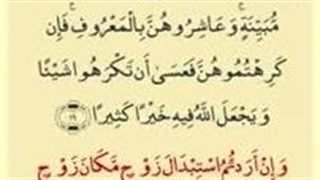 مُّبَيِّنَةٍ ۚ وَعَاشِرُوهُنَّ بِالْمَعْرُوفِ ۚ فَإِن
كَرِهْتُمُوهُنَّ فَعَسَىٰ أَن تَكْرَهُوا شَيْئًا
وَيَجْعَلَ اللَّهُ فِيهِ خَيْرًا كَثِيرًا ۝١٩
وَإِنْ أَرَدتُّمُ اسْتِبْدَالَ زَوْجٍ مَّكَانَ زَوْجٍ